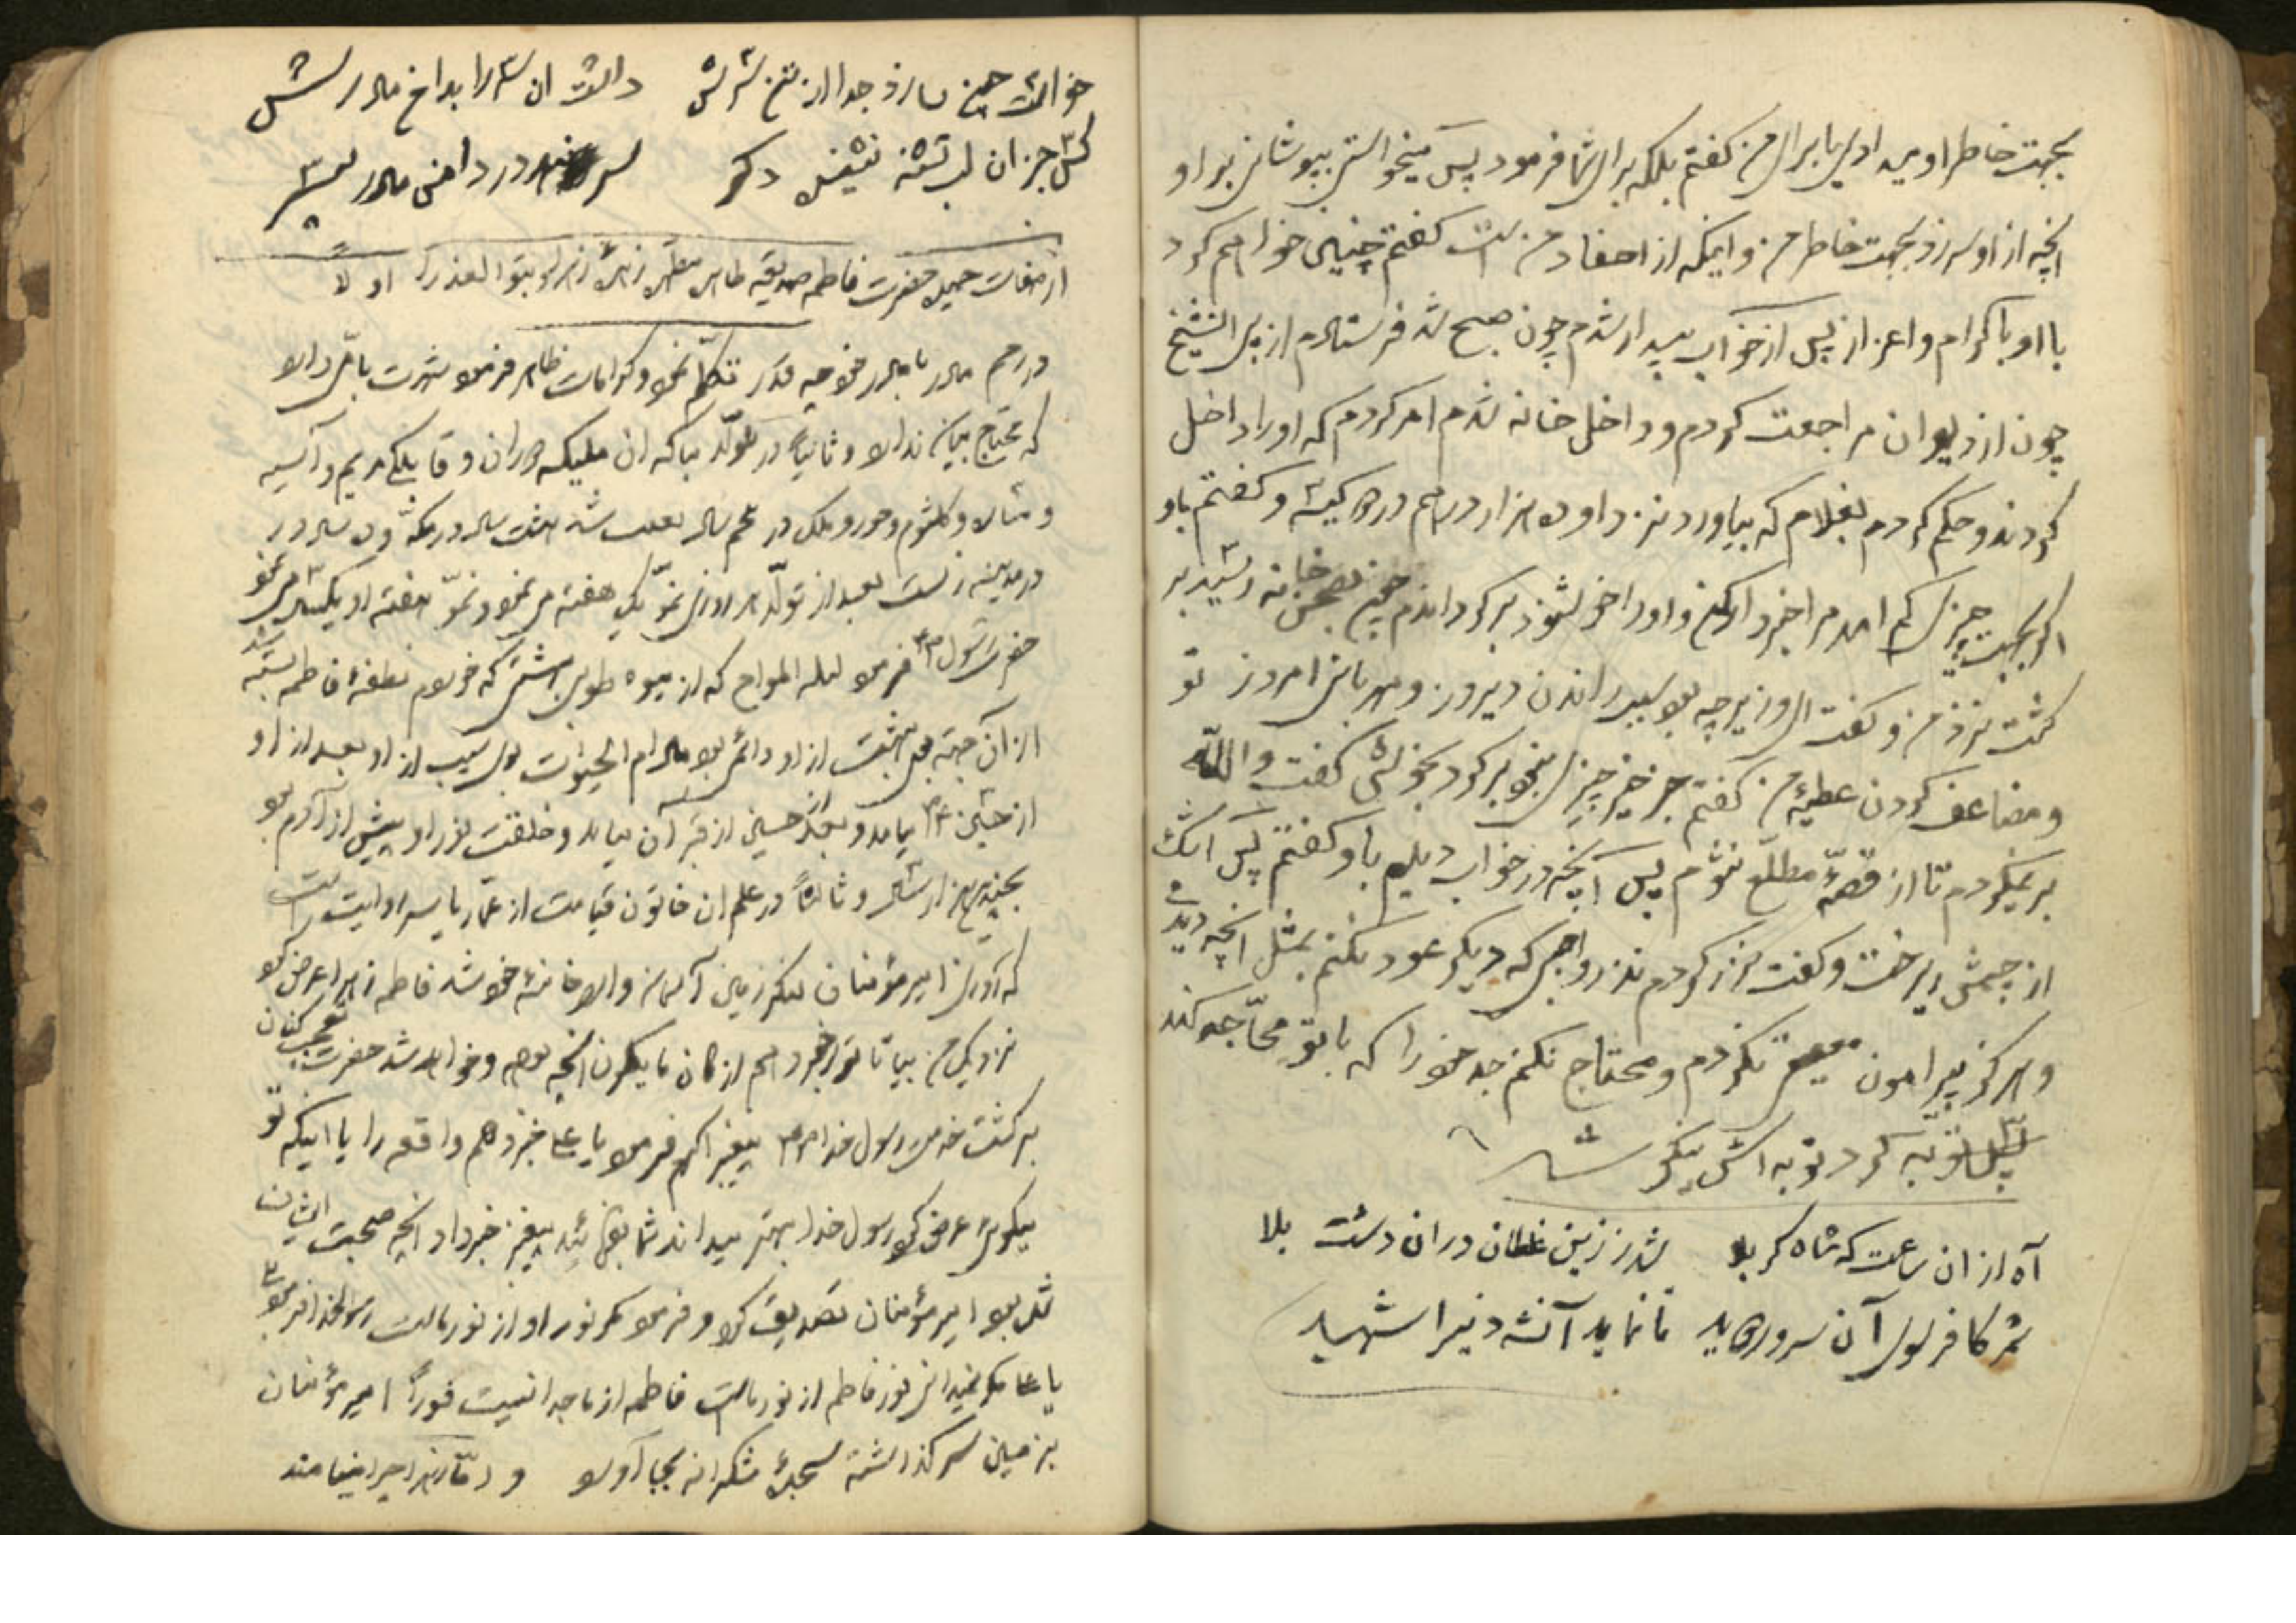 بجهت خاطر او میدادی یا برای من گفتم بلکه برای شما فرمود پس میخواستی بپوشانی بر او
آنچه از او سر زد بجهت خاطر من و اینکه از احفاد من است گفتم چنین خواهم کرد
با او با کرام و اعزاز پس از خواب بیدار شدم چون صبح شد فرستادم از پی آن شیخ
چون از دیوان مراجعت کردم و داخل خانه شدم امر کردم که او را داخل
کردند و حکم کردم بغلام که بیاورد نزد او ده هزار درهم در دو کیسه و گفتم باو
اگر بجهت چیزی کم آمد مرا خبر دار کن و او را خوشنود برگرداندم چون بصحن خانه رسید بر
گشت نزد من و گفت ای وزیر چه بود سبب راندن دیروز و مهربانی امروز تو
و مضاعف کردن عطیه من گفتم جز خیر چیزی نبود برگرد بخوشی گفت والله
برنمیگردم تا از قصه مطلع نشوم پس آنچه در خواب دیدم باو گفتم پس اشک
از چشمش ریخت و گفت نذر کردم نذر واجبی که دیگر عود نکنم بمثل آنچه دیدی
و هرگز پیرامون معصیت نگردم و محتاج نکنم جد خود را که با تو محاجه کند
پس توبه کرد و توبه اش نیکو شد
آه از آن ساعت که شاه کربلا شد ز زین غلطان در آن دشت بلا
شمر کافر سوی آن سرور دوید تا نماید آن شه دین را شهید
خواست چون سازد جدا از تن سرش داشت آن سر را بدامن مادرش
کس جز آن لب تشنه نشنیده دگر سر در دامن مادر پسر
از صفات جمیله حضرت فاطمه صدیقه طاهره مطهره زهره زهرا و بتول عذرا اولاً
در رحم مادر با مادر خود خدیجه تکلم نمود و کرامات ظاهر فرمود شهرت تامی دارد
که محتاج بیان ندارد و ثانیاً در تولد مبارکه آن ملیکه دوران و قابلگی مریم و آسیه
و ساره و کلثوم و حور و ملک در پنجم سال بعثت شد هشت سال در مکه و ده سال در
در مدینه زیست بعد از تولد هر روزی نمو یک هفته می نمود و نمو هفته او یکسال می نمود
حضرت رسول ص فرمود لیله المعراج که از میوه طوبی بهشتی که خوردم نطفه فاطمه بسته شد
از آن جهة بوی بهشت از او دائم بود مادام الحیوة بوی سیب از او بعد از او
از حسین ع بیامد و بعد از حسین از قبر آن بیاید و خلقت نور او پیش از آدم بود
بچندین هزار سال و ثالثاً در علم آن خاتون قیامت از عمار یاسر روایت است
که روزی امیر مؤمنان لنگر زمین و آسمان وارد خانه خود شد فاطمه زهرا عرض کرد
نزدیک من بیا تا ترا خبر دهم از ما کان و ما یکون آنچه بوده و خواهد شد حضرت تعجب کنان
برگشت خدمت رسول خدا ص پیغمبر اکرم فرمود یا علی خبر دهم واقعه را یا اینکه تو
میگوئی عرض کرد رسول خدا بهتر میداند شما بفرمائید پیغمبر خبر داد آنچه صحبت ایشان
شده بود امیر مؤمنان تصدیق کرد و فرمود مگر نور او از نور ماست رسول خدا فرمود
یا علی مگر نمیدانی نور فاطمه از نور ماست فاطمه از ما جدا نیست فوراً امیر مؤمنان
بزمین سر گذاشته سجده شکرانه بجا آورد و